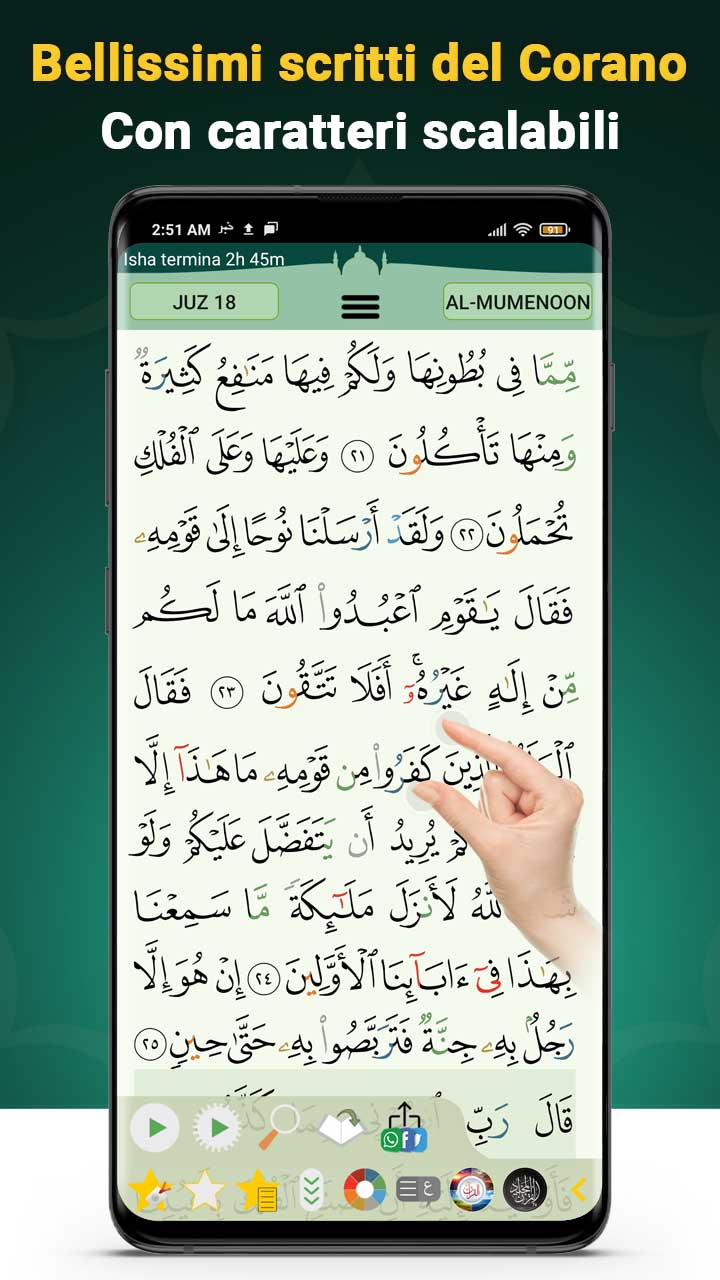 Bellissimi scritti del Corano
Con caratteri scalabili
2:51 AM خبر 91
Isha termina 2h 45m
JUZ 18
AL-MUMENOON
مِّمَّا فِي بُطُونِهَا وَلَكُمْ فِيهَا مَنَـٰفِعُ كَثِيرَةٌ
وَمِنْهَا تَأْكُلُونَ ٢١ وَعَلَيْهَا وَعَلَى ٱلْفُلْكِ
تُحْمَلُونَ ٢٢ وَلَقَدْ أَرْسَلْنَا نُوحًا إِلَىٰ قَوْمِهِۦ
فَقَالَ يَـٰقَوْمِ ٱعْبُدُوا۟ ٱللَّهَ مَا لَكُم
مِّنْ إِلَـٰهٍ غَيْرُهُۥٓ ۚ أَفَلَا تَتَّقُونَ ٢٣ فَقَالَ
كَفَرُوا۟ مِن قَوْمِهِۦ مَا هَـٰذَآ إِلَّا
يُرِيدُ أَن يَتَفَضَّلَ عَلَيْكُمْ وَلَوْ
لَأَنزَلَ مَلَـٰٓئِكَةً مَّا سَمِعْنَا
بِهَـٰذَا فِىٓ ءَابَآئِنَا ٱلْأَوَّلِينَ ٢٤ إِنْ هُوَ إِلَّا
رَجُلٌۢ بِهِۦ جِنَّةٌ فَتَرَبَّصُوا۟ بِهِۦ حَتَّىٰ حِينٍ ٢٥
قَالَ رَبِّ